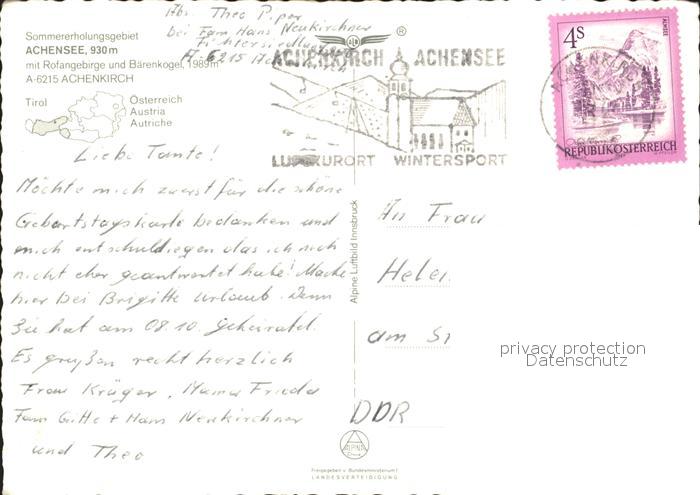 Sommererholungsgebiet
ACHENSEE, 930 m
mit Rofangebirge und Bärenkogel, 1989m
A-6215 ACHENKIRCH
Tirol
Österreich
Austria
Autriche
Abs. Theo Piper
bei Fam Hans Neukirchner
A 6215
®
ACHENKIRCH ACHENSEE
LUFTKURORT WINTERSPORT
4S
ALMSEE
REPUBLIK ÖSTERREICH
Liebe Tante!
Möchte mich zuerst für die schöne
Geburtstagskarte bedanken und
mich entschuldiegen das ich mich
nicht eher geantwortet habe! Mache
hier bei Brigitte Urlaub. Denn
Sie hat am 08.10. geheiratet.
Es grüßen recht herzlich
Frau Krüger, Mama Frieda
Fam Gitte + Hans Neukirchner
und Theo
Alpine Luftbild Innsbruck
An Frau
Helen
am St
DDR
privacy protection
Datenschutz
ALPINE
Freigegeben v. Bundesministerium f.
LANDESVERTEIDIGUNG